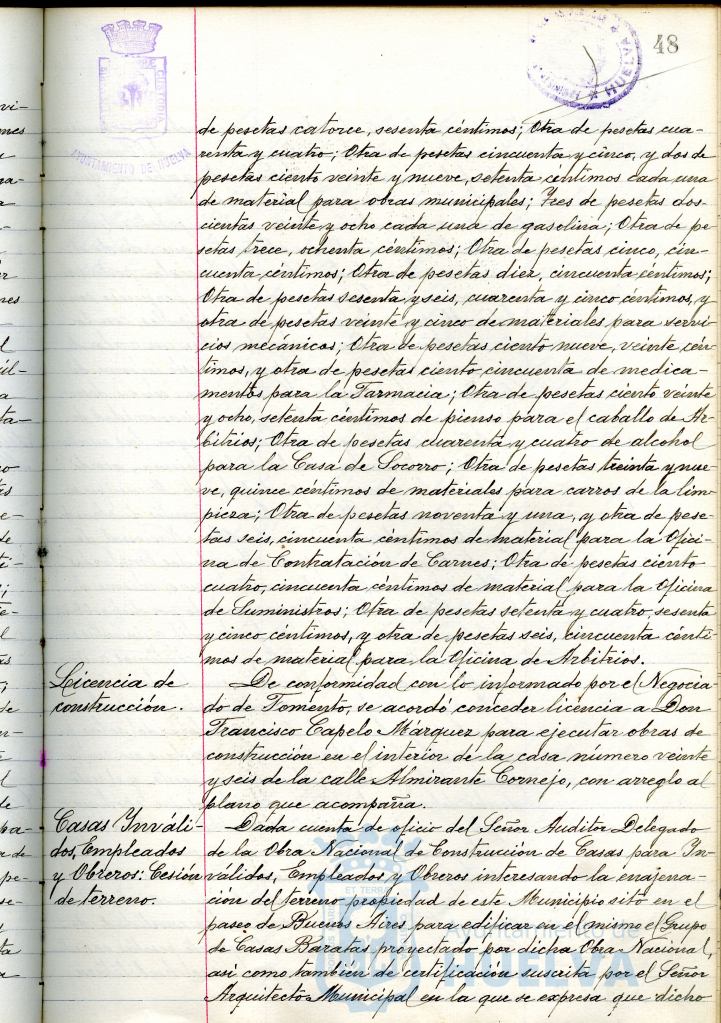 48
AYUNTAMIENTO DE HUELVA
HUELVA
de pesetas catorce, sesenta céntimos; Otra de pesetas cua-
renta y cuatro; Otra de pesetas cincuenta y cinco, y dos de
pesetas ciento veinte y nueve, setenta centimos cada una
de material para obras municipales; Tres de pesetas dos-
cientas veinte y ocho cada una de gasolina; Otra de pe-
setas trece, ochenta céntimos; Otra de pesetas cinco, cin-
cuenta céntimos; Otra de pesetas diez, cincuenta céntimos;
Otra de pesetas sesenta y seis, cuarenta y cinco céntimos, y
otra de pesetas veinte y cinco de materiales para servi
cios mecánicos; Otra de pesetas ciento nueve, veinte cén-
timos, y otra de pesetas ciento cincuenta de medica-
mentos para la Farmacia; Otra de pesetas ciento veinte
y ocho, setenta céntimos de pienso para el caballo de Ar-
bitrios; Otra de pesetas cuarenta y cuatro de alcohol
para la Casa de Socorro; Otra de pesetas treinta y nue-
ve, quince céntimos de materiales para carros de la lim-
pieza; Otra de pesetas noventa y una, y otra de pese-
tas seis, cincuenta centimos de material para la Ofici-
na de Contratación de Carnes; Otra de pesetas ciento
cuatro, cincuenta céntimos de material para la Oficina
de Suministros; Otra de pesetas setenta y cuatro, sesenta
y cinco céntimos, y otra de pesetas seis, cincuenta cénti
mos de material para la Oficina de Arbitrios.
Licencia de
construcción.
De conformidad con lo informado por el Negocia-
do de Fomento, se acordó conceder licencia a Don
Francisco Capelo Márquez para ejecutar obras de
construcción en el interior de la casa número veinte
y seis de la calle Almirante Cornejo, con arreglo al
plano que acompaña.
Casas Inváli-
dos, Empleados
y Obreros: Cesión
de terreno.
Dada cuenta de oficio del Señor Auditor Delegado
de la Obra Nacional de Construcción de Casas para In-
válidos, Empleados y Obreros interesando la enajena-
ción del terreno propiedad de este Municipio sito en el
paseo de Buenos Aires para edificar en el mismo el Grupo
de Casas Baratas proyectado por dicha Obra Nacional,
así como también de certificación suscrita por el Señor
Arquitecto Municipal en la que se expresa que dicho
Ayuntamiento de
HUELVA